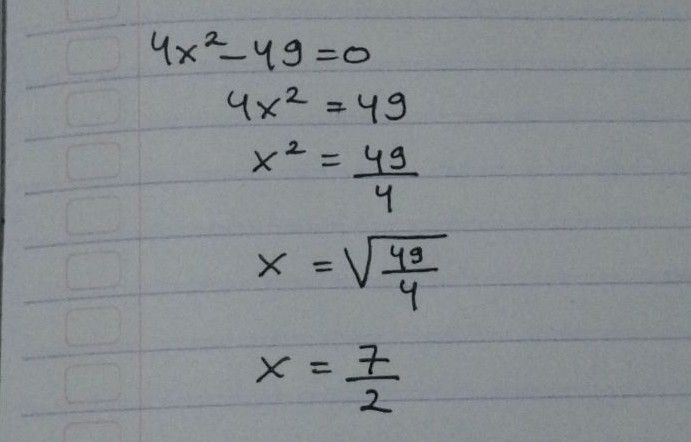 4x² - 49 = 0
4x² = 49
x² = 49/4
x = √(49/4)
x = 7/2